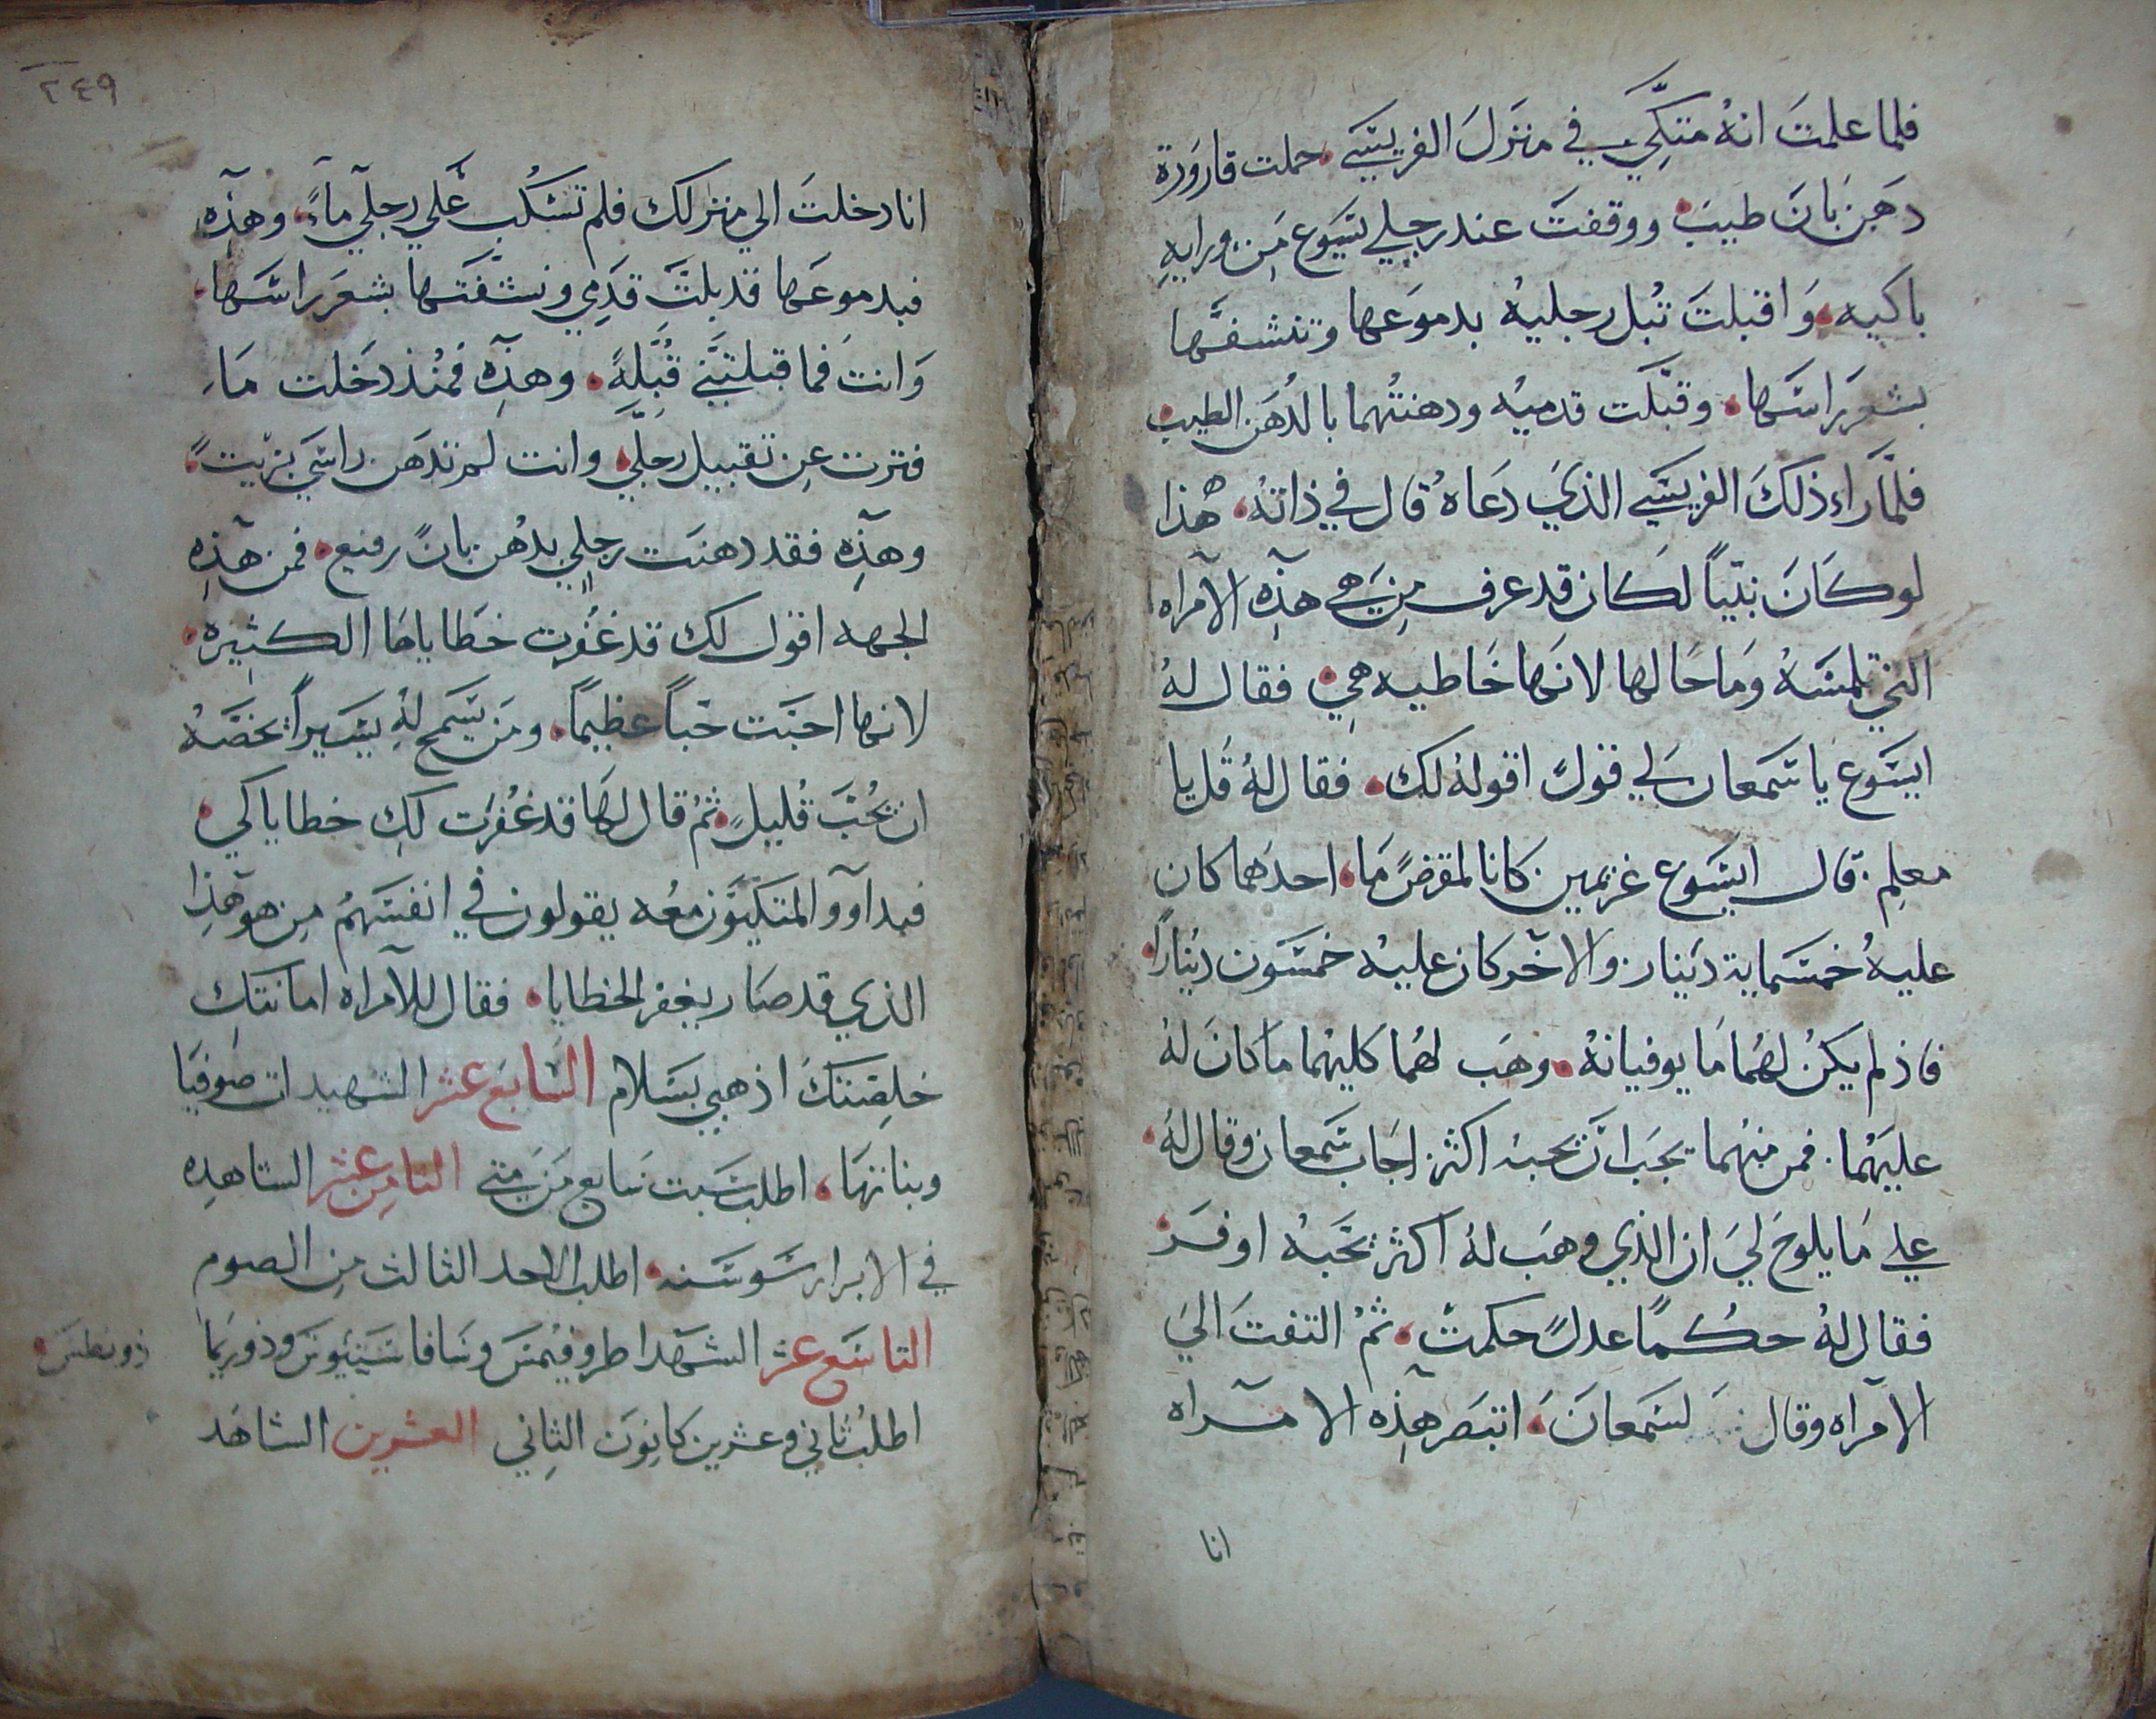 فلما علمت انه متكي في منزل الفريسي حملت قارورة
دهن بان طيب ووقفت عند رجلي يسوع من ورايه
باكيه واقبلت تبل رجليه بدموعها وتنشفها
بشعر راسها وقبلت قدميه ودهنتهما بالدهن الطيب
فلما راء ذلك الفريسي الذي دعاه قال في ذاته هذا
لو كان نبياً لكان قد عرف من هي هذه الامراه
التي تلمسه وما حالها لانها خاطيه هي فقال له
ايسوع يا سمعان لي قول اقوله لك فقال له قل يا
معلم قال ايسوع غريمين كانا لمقرض ما احدهما كان
عليه خمسماية دينار والاخر كان عليه خمسون ديناراً
فاذ لم يكن لهما ما يوفيانه وهب لهما كليهما ما كان له
عليهما فمن منهما يجب ان يحبه اكثر اجاب سمعان وقال له
علي ما يلوح لي ان الذي وهب له اكثر يحبه اوفر
فقال له حكماً عدل حكمت ثم التفت الي
الامراه وقال لسمعان اتبصر هذه الامراه
انا
٢٤٩
انا دخلت الي منزلك فلم تسكب علي رجلي ماءً وهذه
فبدموعها قد بلت قدمي ونشفتها بشعر راسها
وانت فما قبلتني قبلةً وهذه فمنذ دخلت ما
فترت عن تقبيل رجلي وانت لم تدهن راسي بزيت
وهذه فقد دهنت رجلي بدهن بان رفيع فمن هذه
الجهه اقول لك قد غفرت خطاياها الكثيره
لانها احبت حباً عظيماً ومن يسمح له يسيراً يخصه
ان يحب قليل ثم قال لها قد غفرت لك خطاياكي
فبداوو المتكيون معه يقولون في انفسهم من هو هذا
الذي قد صار يغفر الخطايا فقال للامراه امانتك
خلصتك اذهبي بسلام السابع عشر الشهيدات صوفيا
وبناتها اطلب سبت سابع من متي الثامن عشر الشاهده
في الابرار سوسنه اطلب الاحد الثالث من الصوم
التاسع عشر الشهدا طروفيمس وسافاسيوس وذوريما
ذونطس
اطلب ثاني وعشرين كانون الثاني العشرين الشاهد